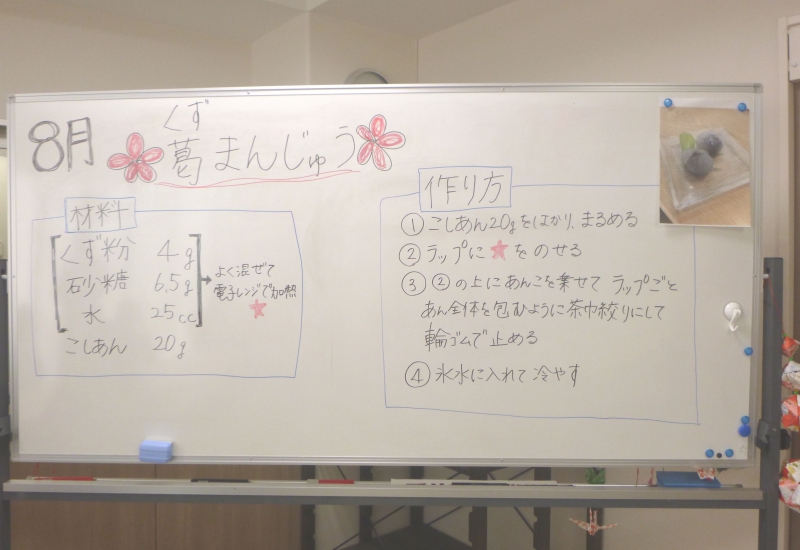 8月
くず
葛まんじゅう
材料
くず粉 4g
砂糖 6.5g
水 25cc
こしあん 20g
よく混ぜて
電子レンジで加熱
★
作り方
① こしあん20gをはかり、まるめる
② ラップに★をのせる
③ ②の上にあんこを乗せて ラップごと
あん全体を包むように茶巾絞りにして
輪ゴムで止める
④ 氷水に入れて冷やす